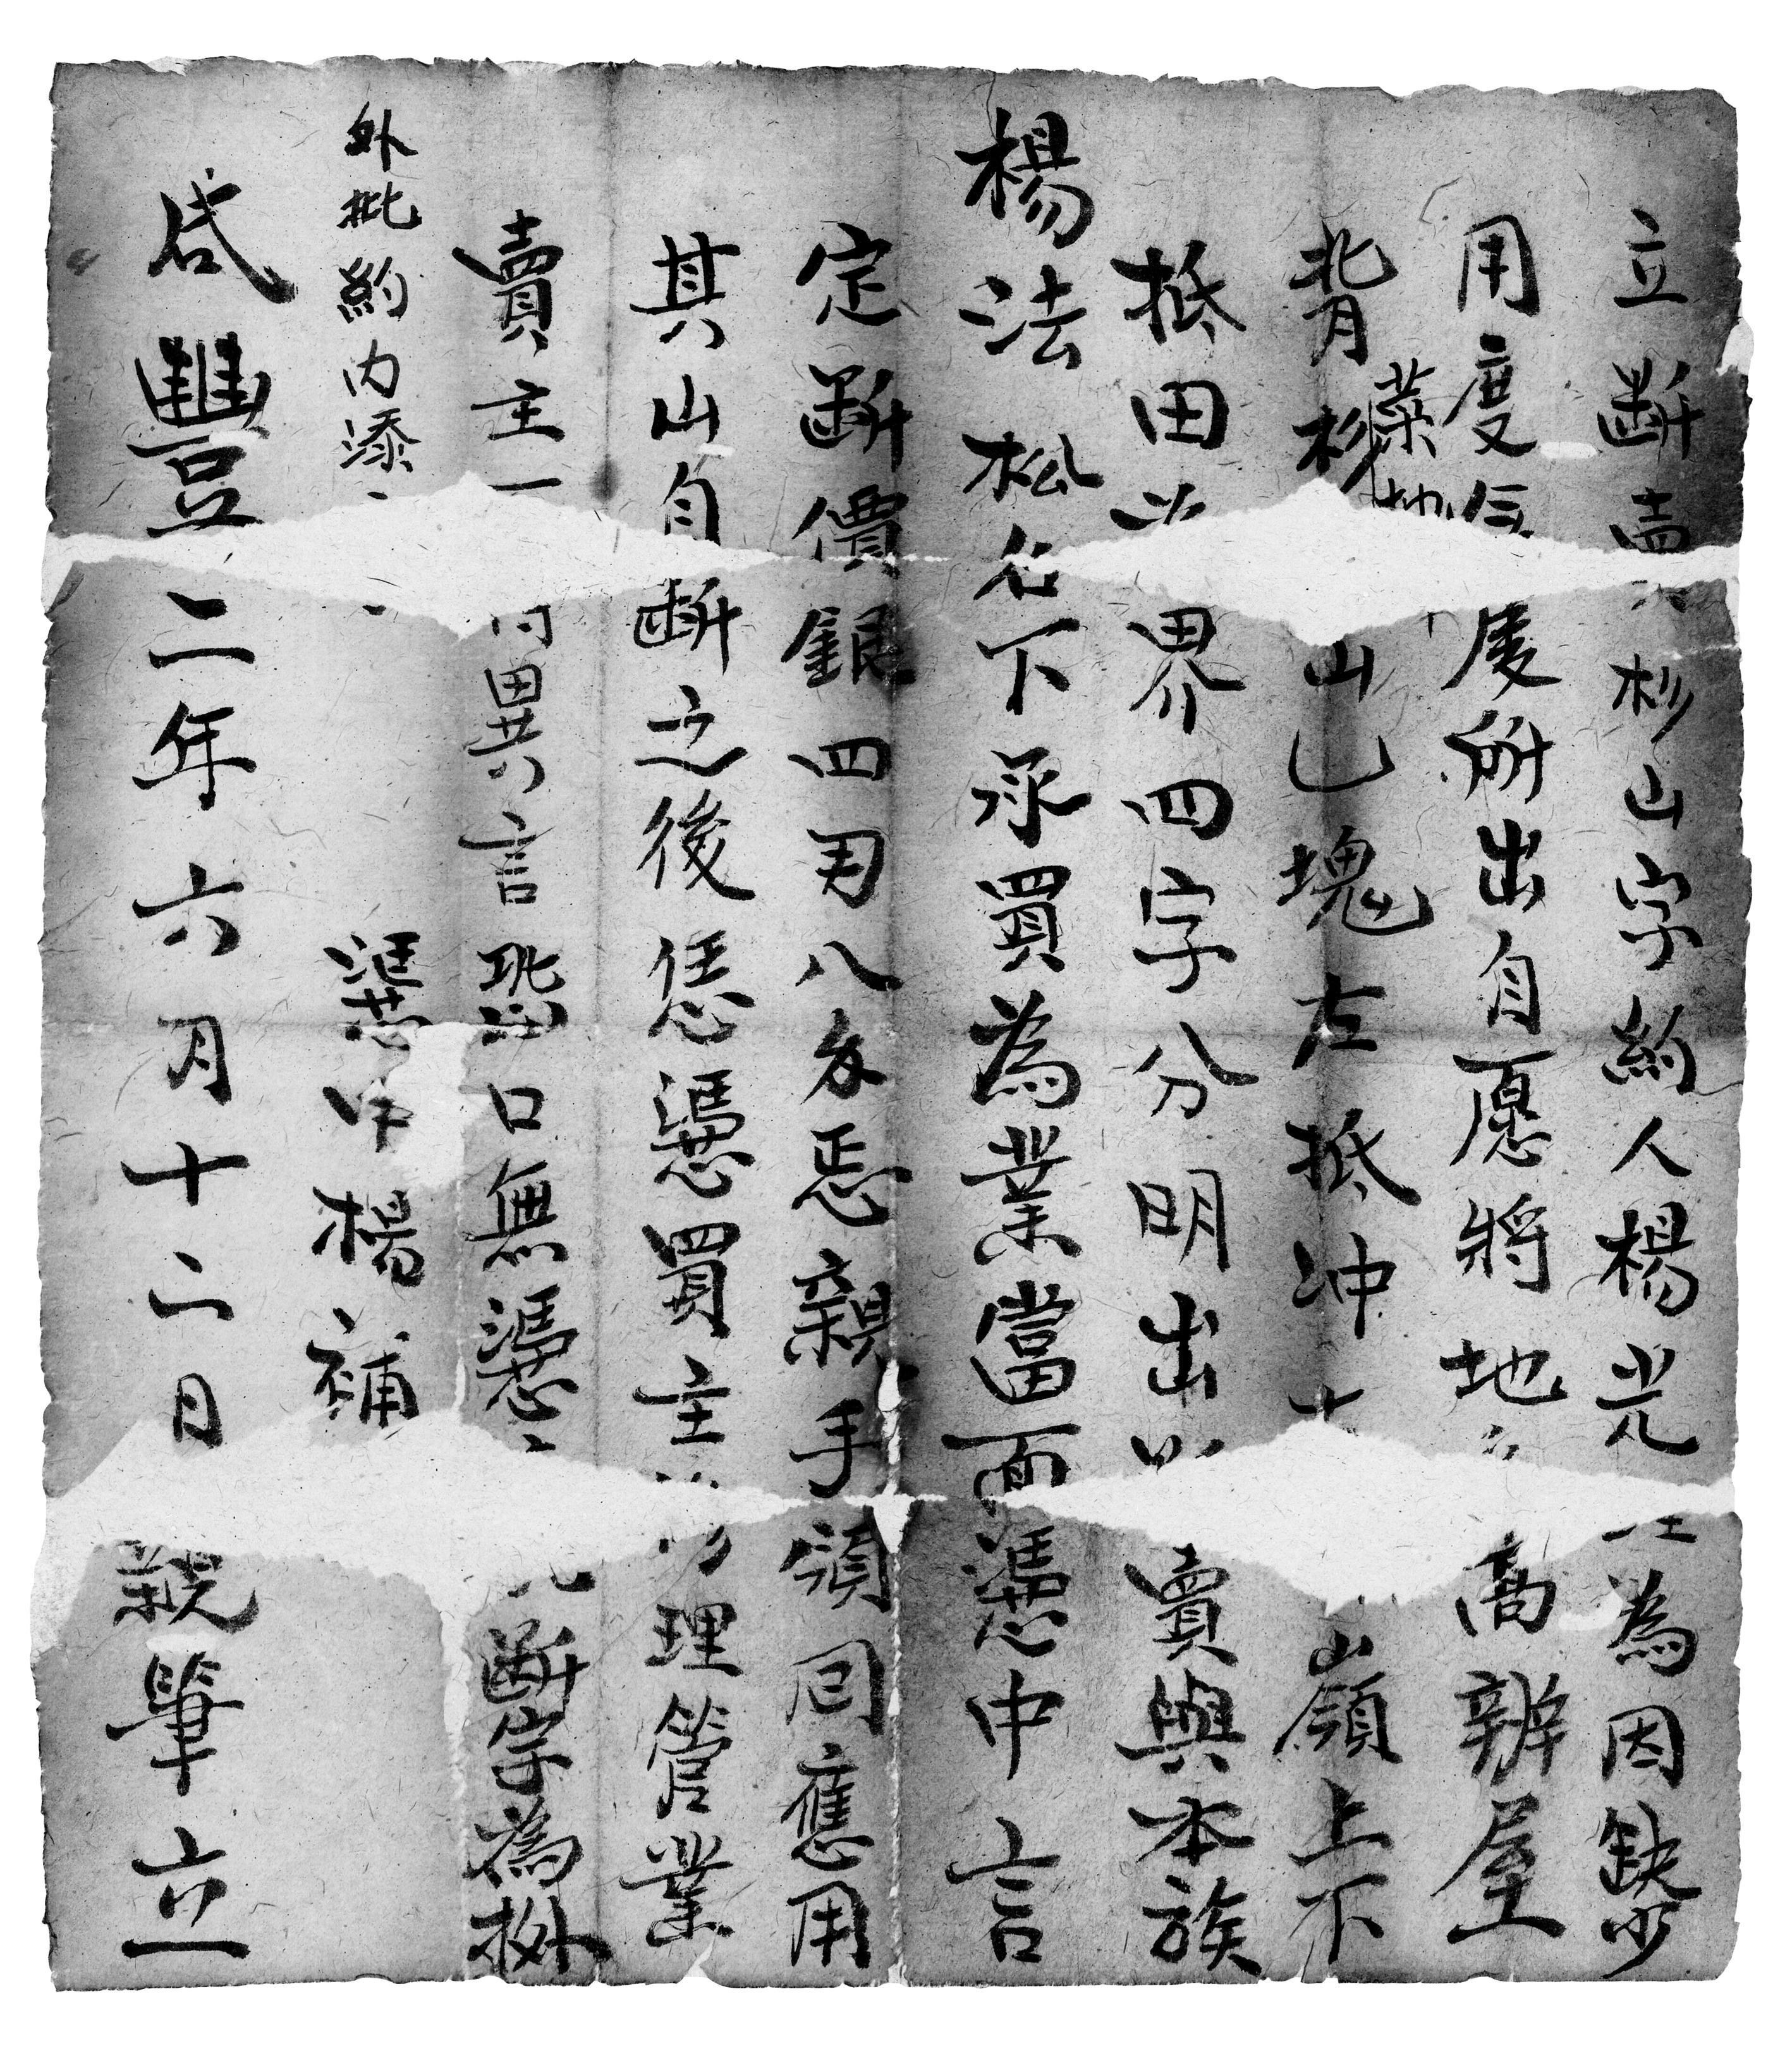 立斷賣杉山字約人楊光為因缺少
用度無度所出自愿將地高辦屋
背杉菜地山乚塊左抵冲嶺上下
抵田為界四字分明出賣與本族
楊法松名下承買為業當面憑中言
定斷價銀四男八分恁親手領回應用
其山自斷之後恁憑買主修理管業
賣主一異言恐口無憑斷字為挶
外批約內添
憑中楊補
咸豐二年六月十二日親筆立